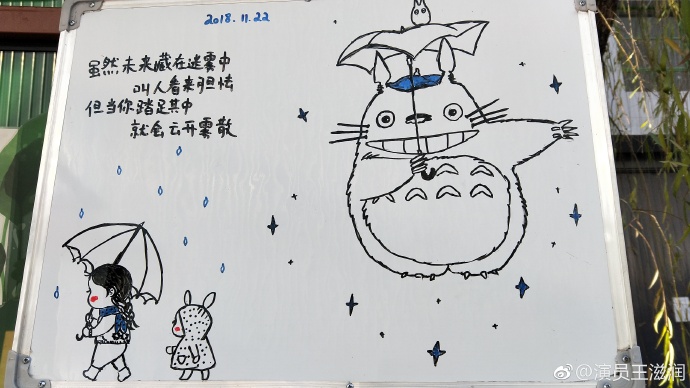 2018.11.22
虽然未来藏在迷雾中
叫人看来胆怯
但当你踏足其中
就会云开雾散
@演员王滋润